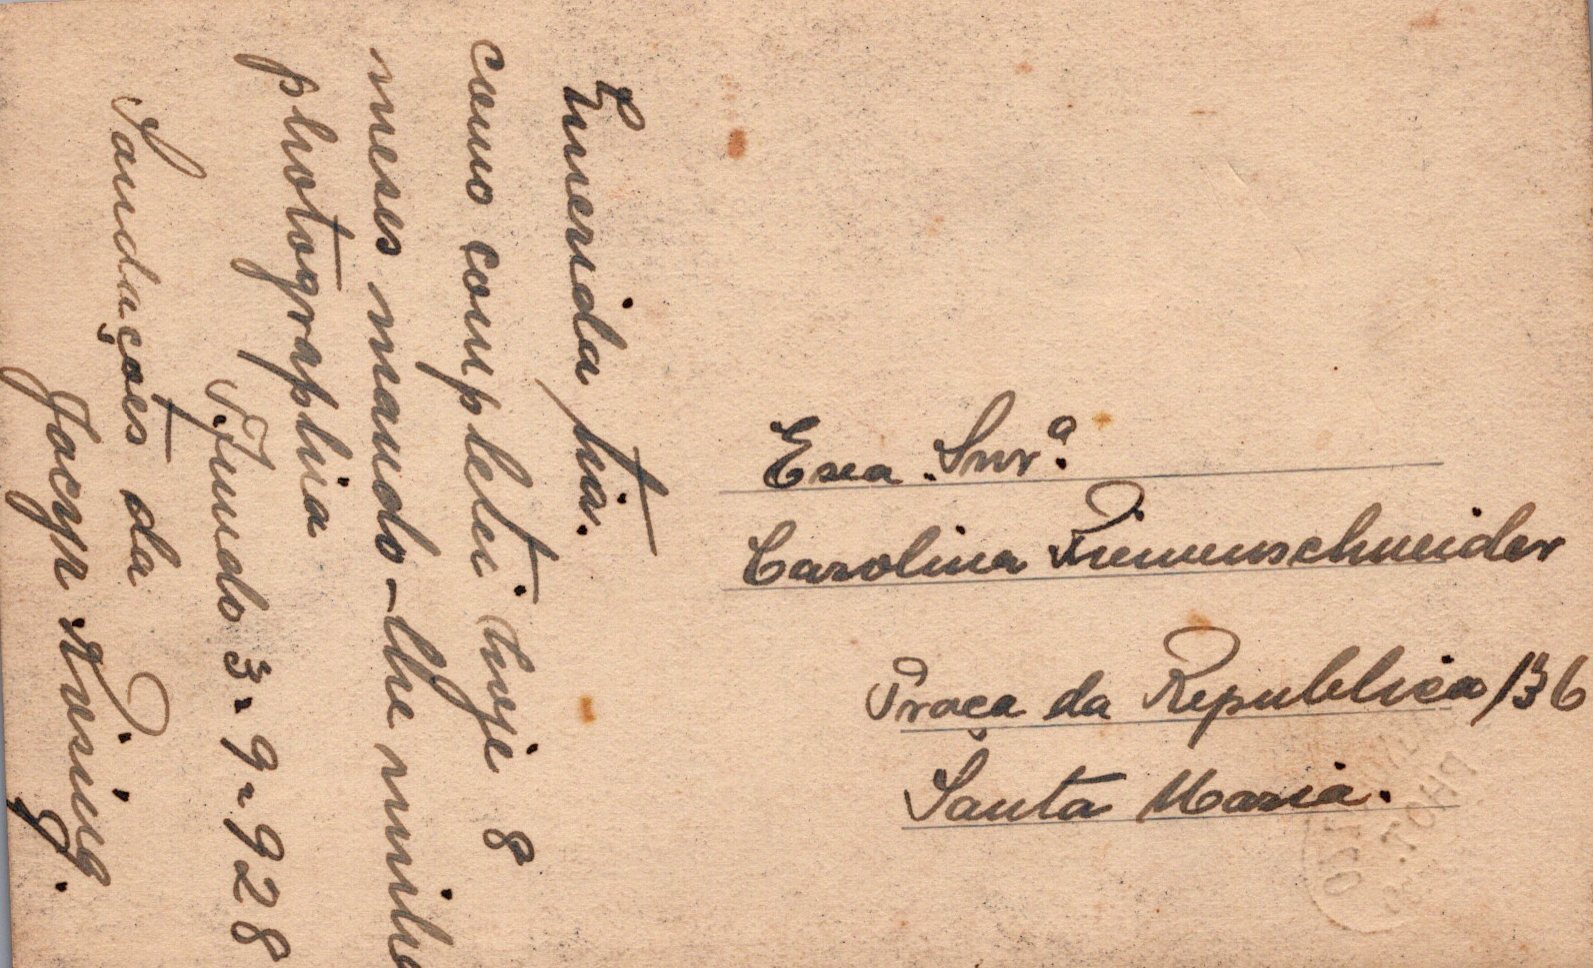 Querida tia.
como completei hoje 8
meses mando-lhe minha
photographia
P. Fundo 3-9-928
Saudações da
Jacyr Rösing.
Exa. Snrª.
Carolina Riemenschneider
Praça da Republica 136
Santa Maria.
PHOT.